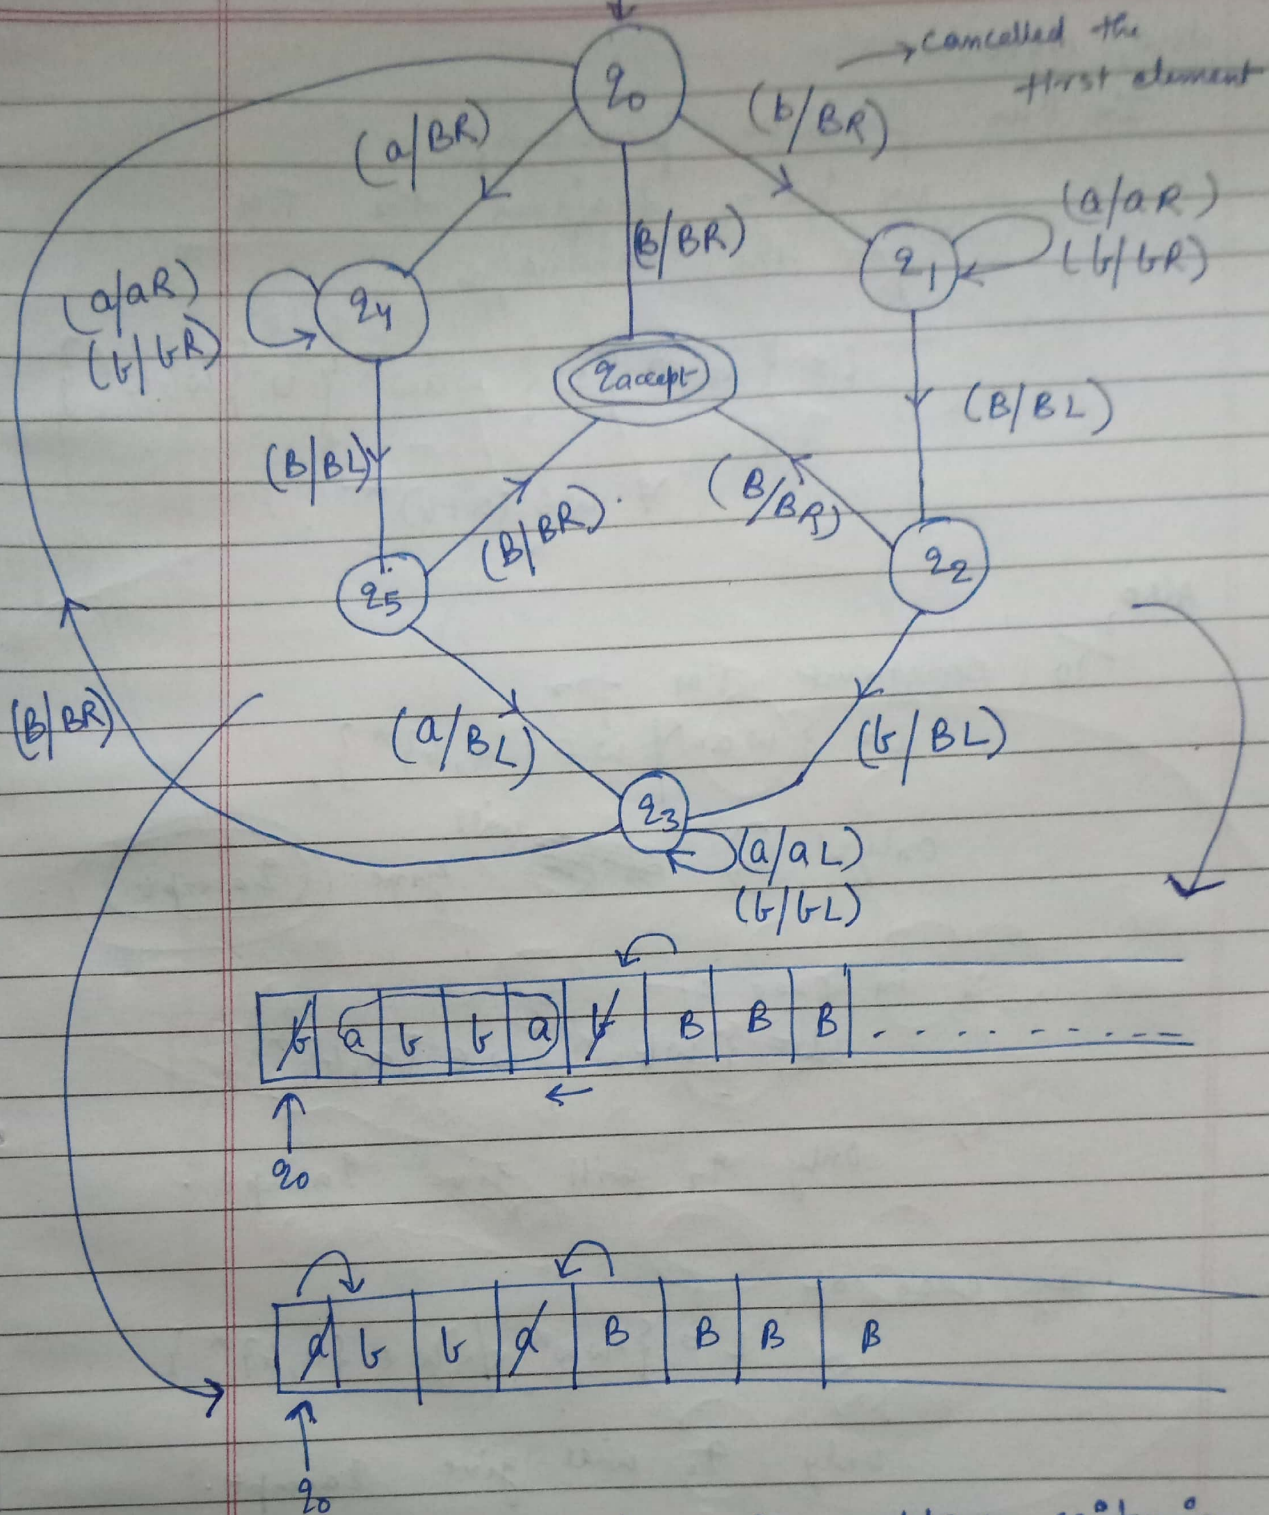 q0
→ cancelled the
first element
(a/BR)
(b/BR)
(B/BR)
(a/aR)
(b/bR)
q1
(a/aR)
(b/bR)
q4
qaccept
(B/BL)
(B/BL)
(B/BR)
(B/BR)
q5
q2
(B/BR)
(a/BL)
(b/BL)
q3
(a/aL)
(b/bL)
b a b b a b B B B . . . . . . . . .
q0
a b b a B B B B
q0